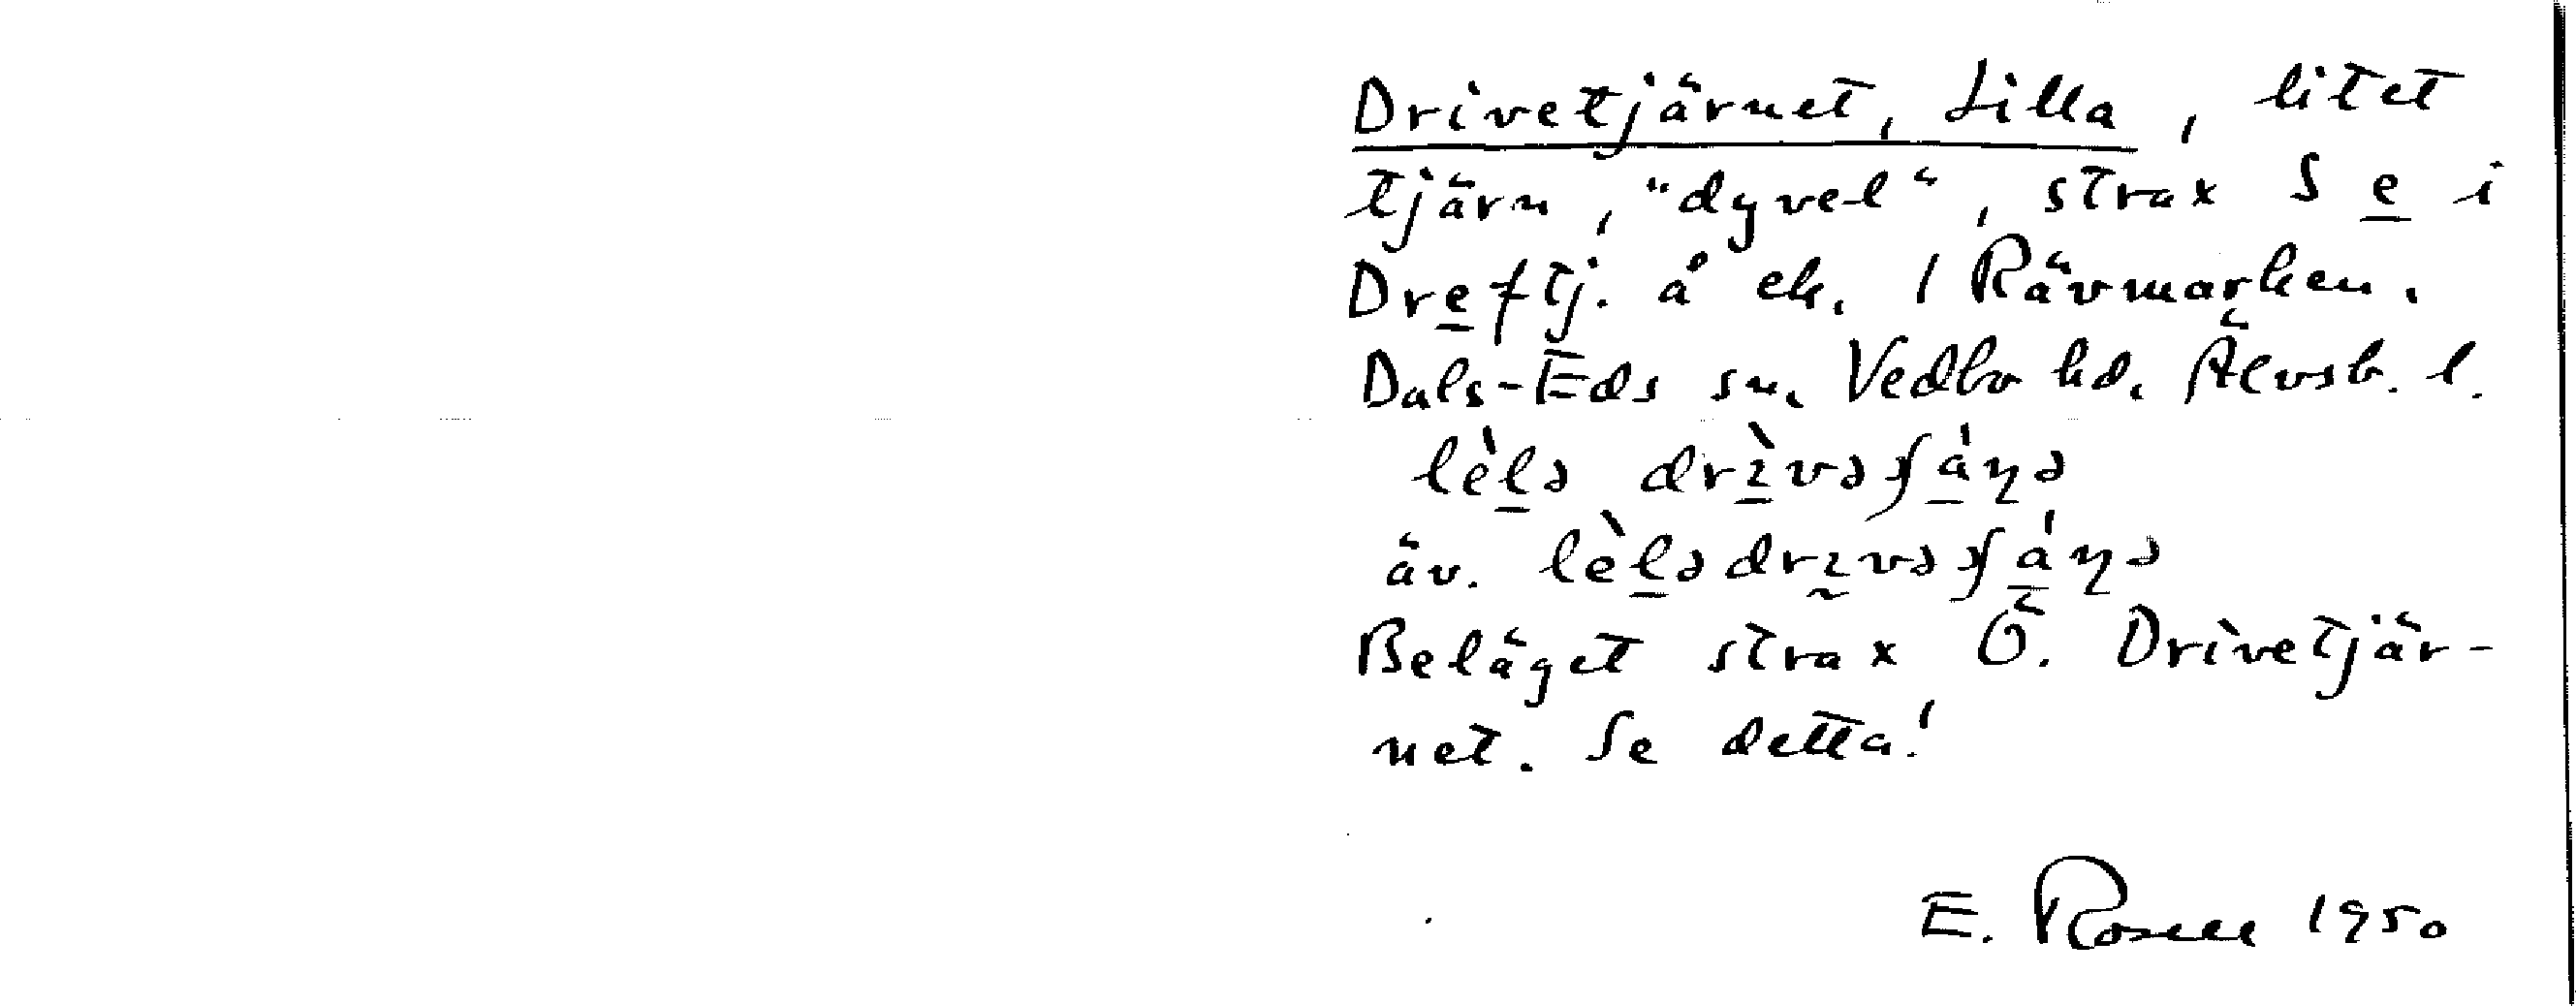 Drivetjärnet, Lilla, litet
tjärn, "dyvel", strax S e i
Dreftj. å ek. 1 Rävmarken.
Dals-Eds sn. Vedbo hd. Älvsb. l.
lèlə drìvəʃánə
äv. lèlədrıvəʃánə
Beläget strax Ö. Drivetjär-
net. Se detta!
E. Rosell 1950